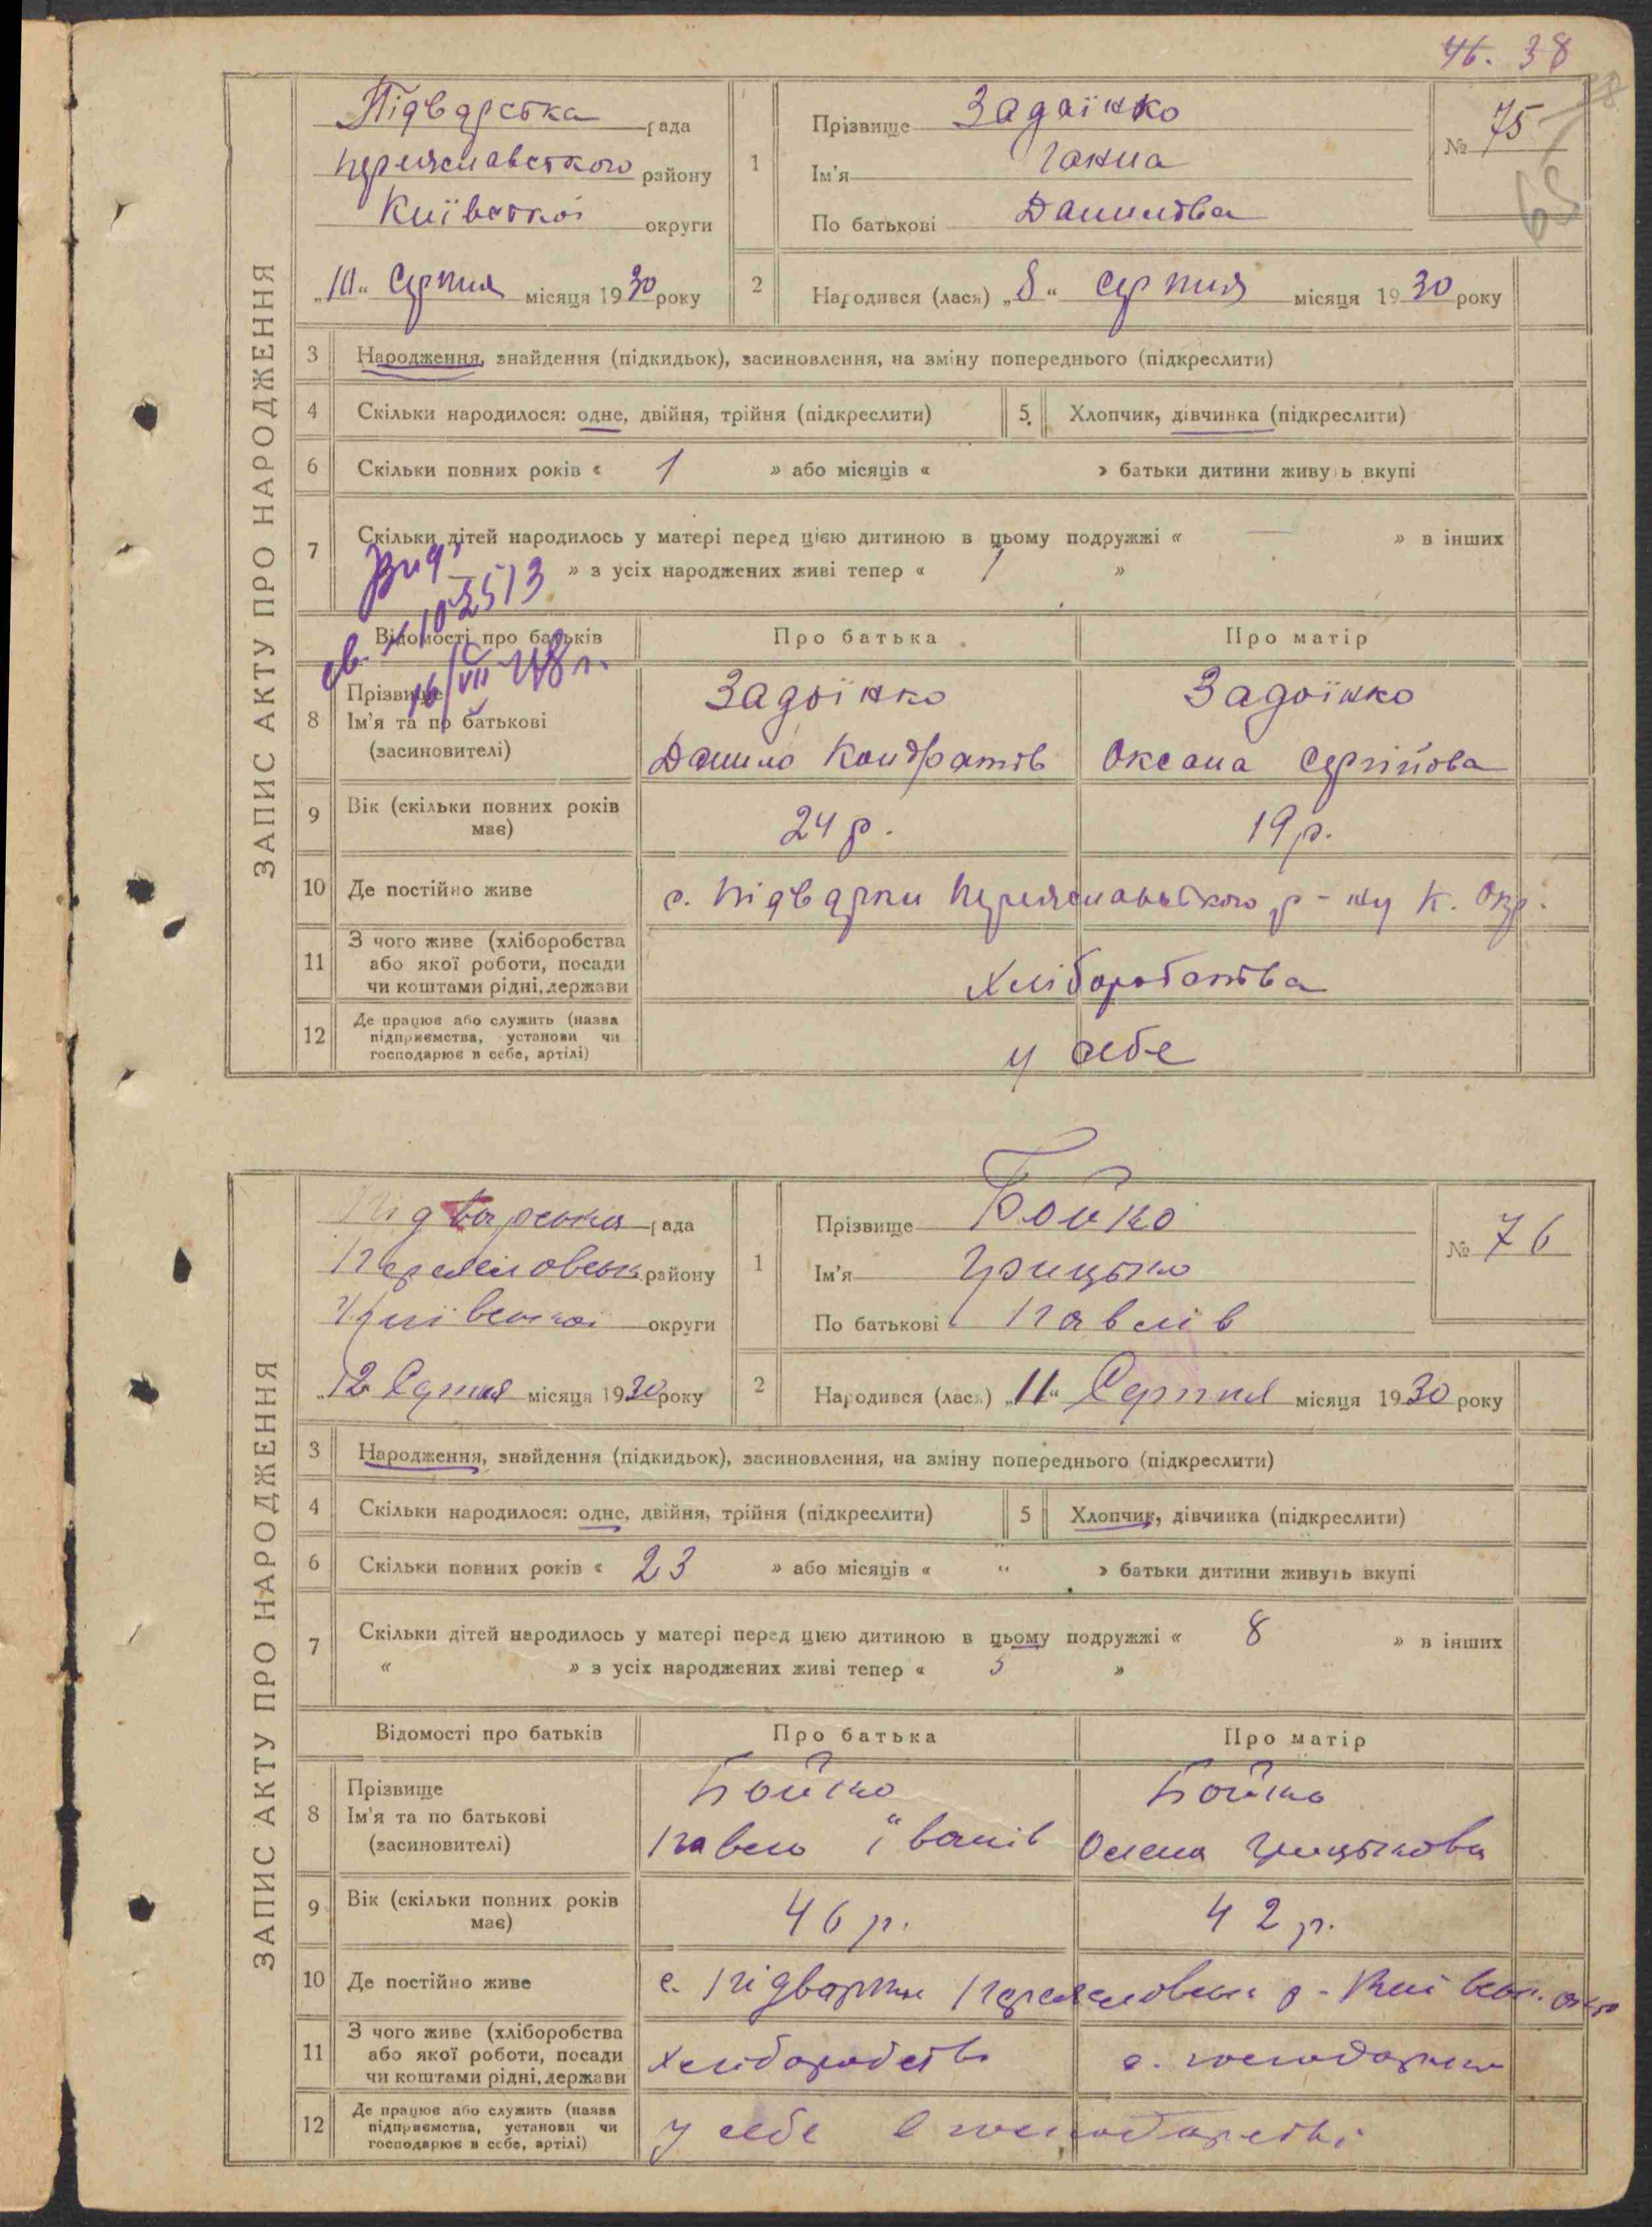 46. 38
ЗАПИС АКТУ ПРО НАРОДЖЕННЯ
Підварська рада
Переяславського району
Київської округи
„10“ Серпня місяця 1930 року
1
Прізвище Задоїнко
Ім'я Ганна
По батькові Данилова
№ 75
65
2
Народився (лася) „8“ Серпня місяця 1930 року
3 Народження, знайдення (підкидьок), засиновлення, на зміну попереднього (підкреслити)
4 Скільки народилося: одне, двійня, трійня (підкреслити) 5. Хлопчик, дівчинка (підкреслити)
6 Скільки повних років « 1 » або місяців « » батьки дитини живуть вкупі
7 Скільки дітей народилось у матері перед цією дитиною в цьому подружжі « — » в інших
» з усіх народжених живі тепер « 1 »
Відомості про батьків Про батька Про матір
8 Прізвище Ім'я та по батькові (засиновителі)
Задоїнко Задоїнко
Данило Кондратів Оксана Сергійова
9 Вік (скільки повних років має) 24 р. 19 р.
10 Де постійно живе с. Підварки Переяславського р-ну К. Окр.
11 З чого живе (хліборобства або якої роботи, посади чи коштами рідні, держави Хліборобства
12 Де працює або служить (назва підприємства, установи чи господарює в себе, артілі) у себе
ЗАПИС АКТУ ПРО НАРОДЖЕННЯ
Підварська рада
Переяславськ району
Київської округи
„12 Серпня місяця 1930 року
1
Прізвище Бойко
Ім'я Грицько
По батькові Павлів
№ 76
2
Народився (лася) „11“ Серпня місяця 1930 року
3 Народження, знайдення (підкидьок), засиновлення, на зміну попереднього (підкреслити)
4 Скільки народилося: одне, двійня, трійня (підкреслити) 5 Хлопчик, дівчинка (підкреслити)
6 Скільки повних років « 23 » або місяців « » батьки дитини живуть вкупі
7 Скільки дітей народилось у матері перед цією дитиною в цьому подружжі « 8 » в інших
« » з усіх народжених живі тепер « »
Відомості про батьків Про батька Про матір
8 Прізвище Ім'я та по батькові (засиновителі)
Бойко Бойко
Павло Іванів Олена Грицькова
9 Вік (скільки повних років має) 46 р. 42 р.
10 Де постійно живе с. Підварки Переяславськ р- Київськ. окр
11 З чого живе (хліборобства або якої роботи, посади чи коштами рідні, держави Хліборобств
12 Де працює або служить (назва підприємства, установи чи господарює в себе, артілі) у себе в господарстві